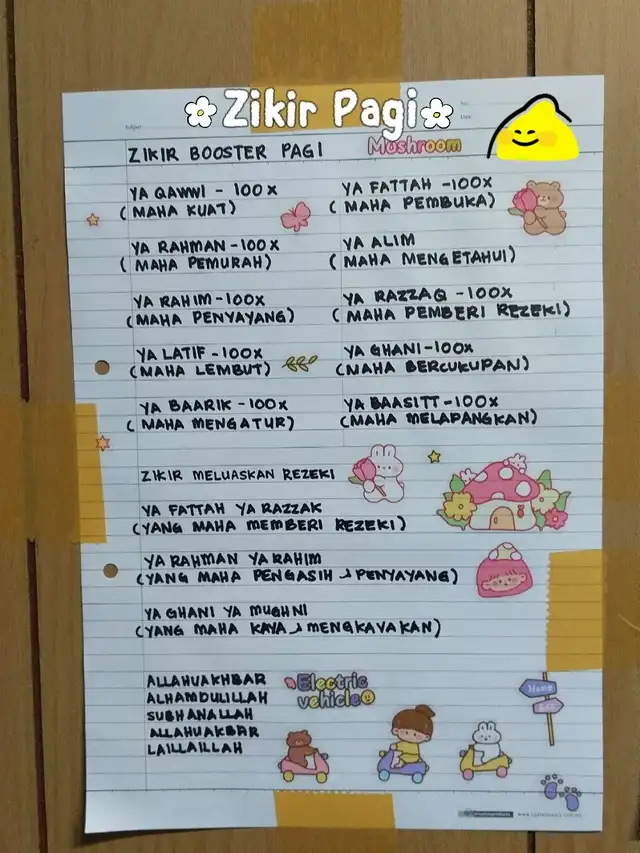 Zikir Pagi
Subject
No.
Date
ZIKIR BOOSTER PAGI
Mushroom
YA QAWWI - 100X
(MAHA KUAT)
YA FATTAH -100X
(MAHA PEMBUKA)
YA RAHMAN -100X
(MAHA PEMURAH)
YA ALIM
(MAHA MENGETAHUI)
YA RAHIM -100X
(MAHA PENYAYANG)
YA RAZZAQ -100X
(MAHA PEMBERI REZEKI)
YA LATIF -100X
(MAHA LEMBUT)
YA GHANI-100X
(MAHA BERCUKUPAN)
YA BAARIK -100X
(MAHA MENGATUR)
YA BAASITT -100X
(MAHA MELAPANGKAN)
ZIKIR MELUASKAN REZEKI
YA FATTAH YA RAZZAK
(YANG MAHA MEMBERI REZEKI)
YA RAHMAN YA RAHIM
(YANG MAHA PENGASIH & PENYAYANG)
YA GHANI YA MUGHNI
(YANG MAHA KAYA & MENGKAYAKAN)
ALLAHUAKHBAR
ALHAMDULILLAH
SUBHANALLAH
ALLAHUAKBAR
LAILLAILLAH
Electric
vehicle